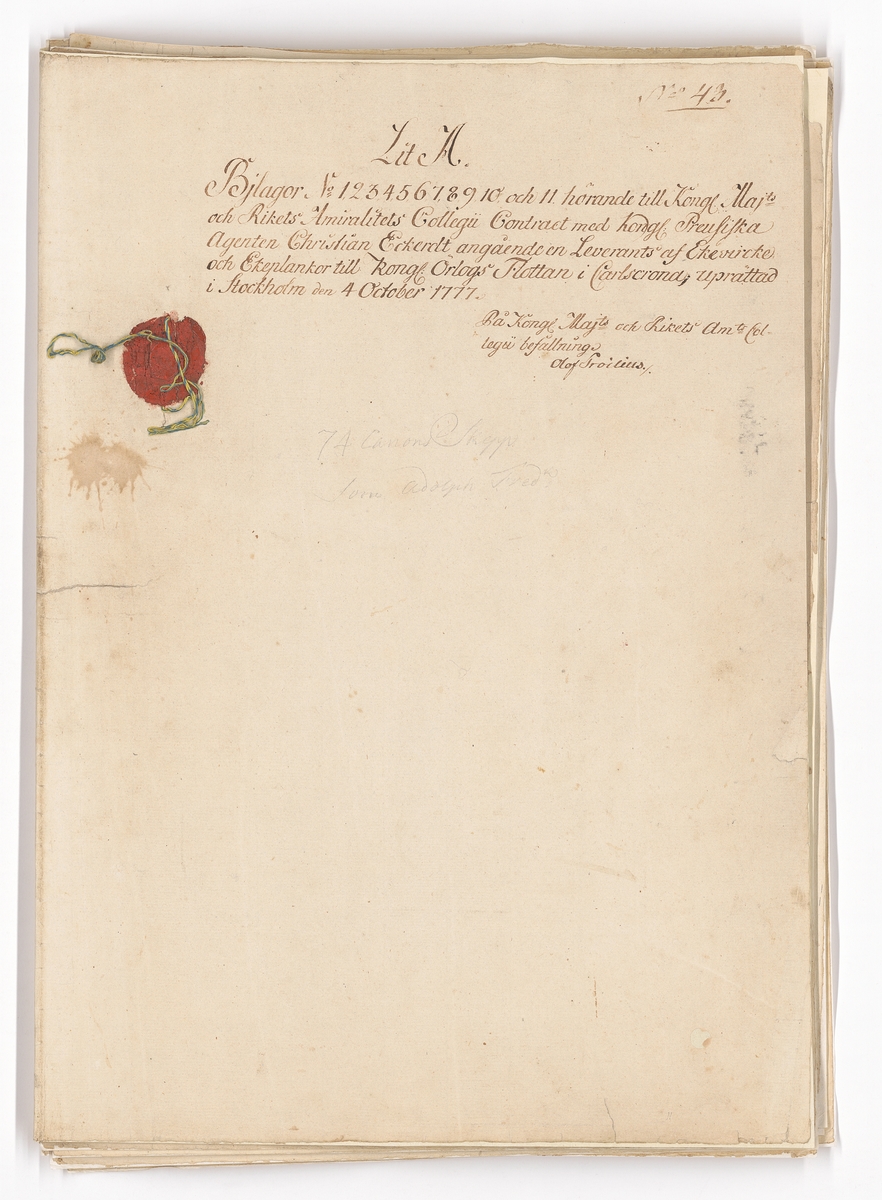 No 43.
Lit A.
Bjlagor No 1 2 3 4 5 6 7 8 9 10 och 11 hörande till Kongl Majts
och Rikets Amiralitets Collegii Contract med kongl Preusiska
Agenten Christian Eckerdt angående en Leverants af Ekevircke
och Ekeplankor till kongl Örlogs Flottan i Carlscrona, uprättad
i Stockholm den 4 October 1777.
På Kongl Majts och Rikets Amts Col-
legii befallning
Olof Troilius
74 Canons Skepp
Adolph Fredr